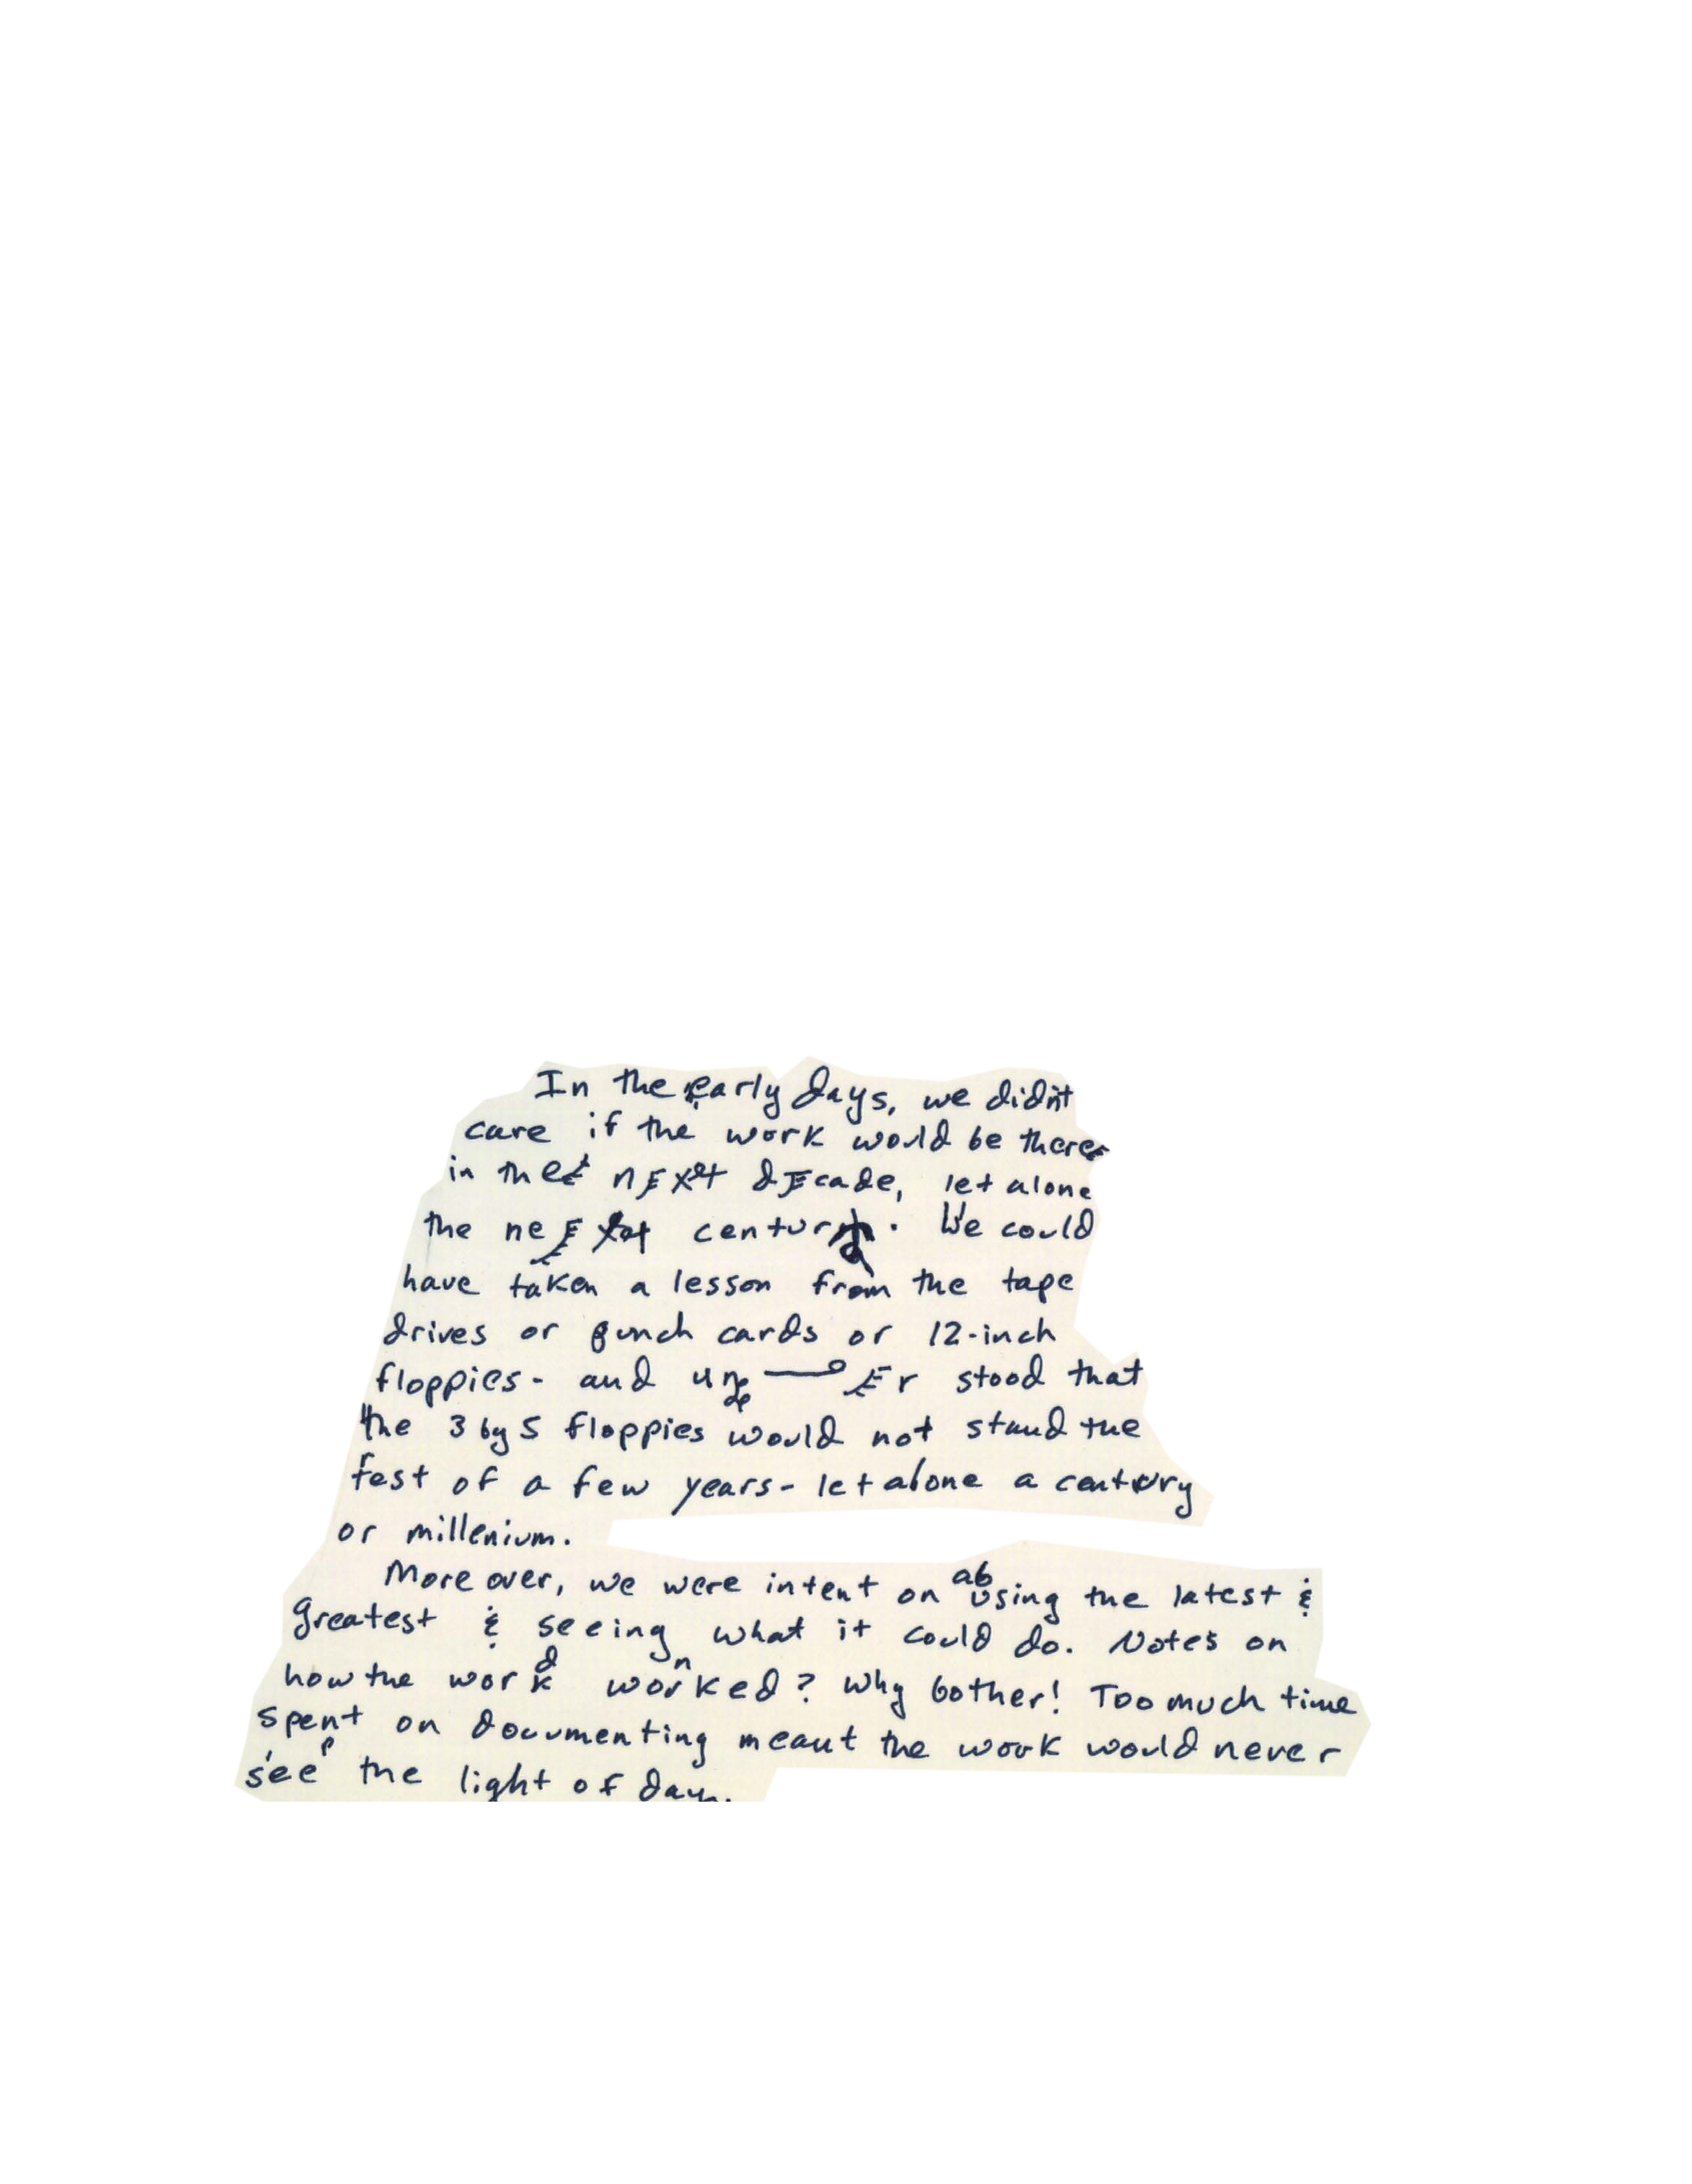 In the early days, we didn't
care if the work would be there
in the nExt dEcade, let alone
the neExt century. We could
have taken a lesson from the tape
drives or punch cards or 12-inch
floppies - and und—Er stood that
the 3 by 5 floppies would not stand the
test of a few years - let alone a century
or millenium.
More over, we were intent on abusing the latest &
greatest & seeing what it could do. Notes on
how the workd wornked? Why bother! Too much time
spent on documenting meant the work would never
seep the light of day.